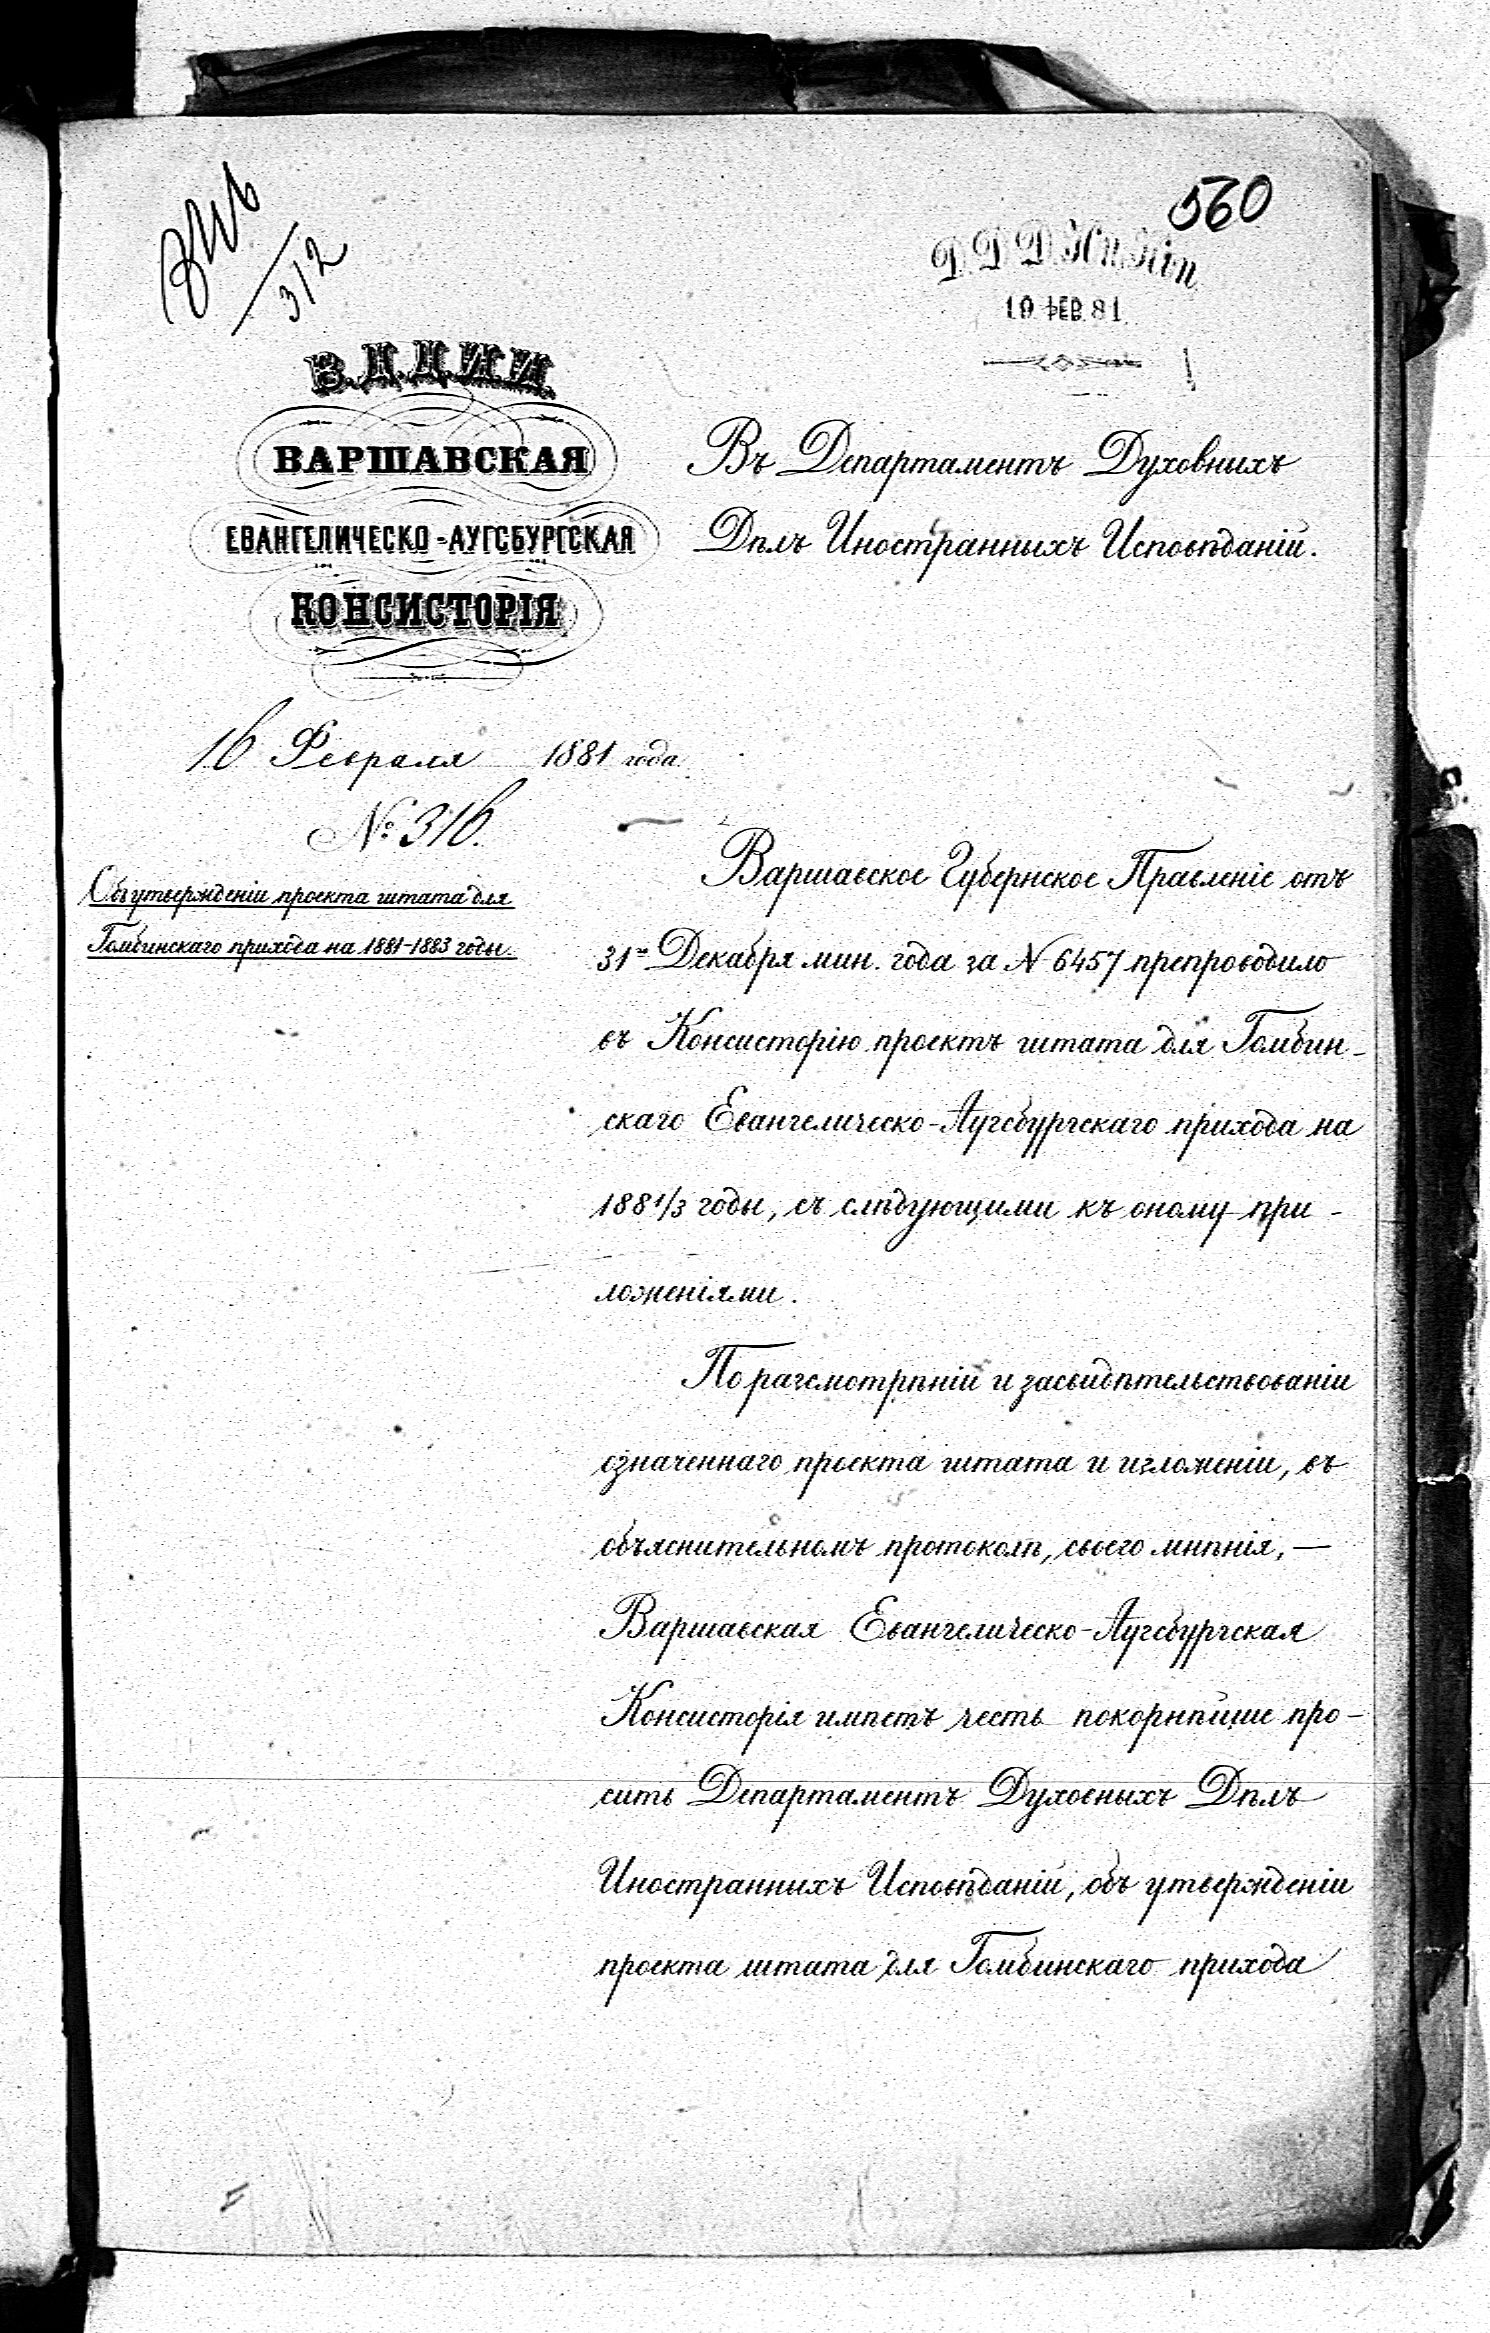 560
312
19 ФЕВ. 81
В.Д.Д.И.И.
ВАРШАВСКАЯ
ЕВАНГЕЛИЧЕСКО-АУГСБУРГСКАЯ
КОНСИСТОРІЯ
16 Февраля 1881 года
№ 316.
Объ утвержденіи проекта штата для
Гомбинскаго прихода на 1881-1883 годы.
Въ Департаментъ Духовныхъ
Дѣлъ Иностранныхъ Исповѣданій.
Варшавское Губернское Правленіе отъ
31го Декабря мин. года за N 6457 препроводило
въ Консисторію проектъ штата для Гомбин-
скаго Евангелическо-Аугсбургскаго прихода на
1881/3 годы, съ слѣдующими къ оному при-
ложеніями.
По разсмотрѣніи и засвидѣтельствованіи
означеннаго проекта штата и изложеніи, въ
объяснительномъ протоколѣ, своего мнѣнія, —
Варшавская Евангелическо-Аугсбургская
Консисторія имѣетъ честь покорнѣйше про-
сить Департаментъ Духовныхъ Дѣлъ
Иностранныхъ Исповѣданій, объ утвержденіи
проекта штата для Гомбинскаго прихода